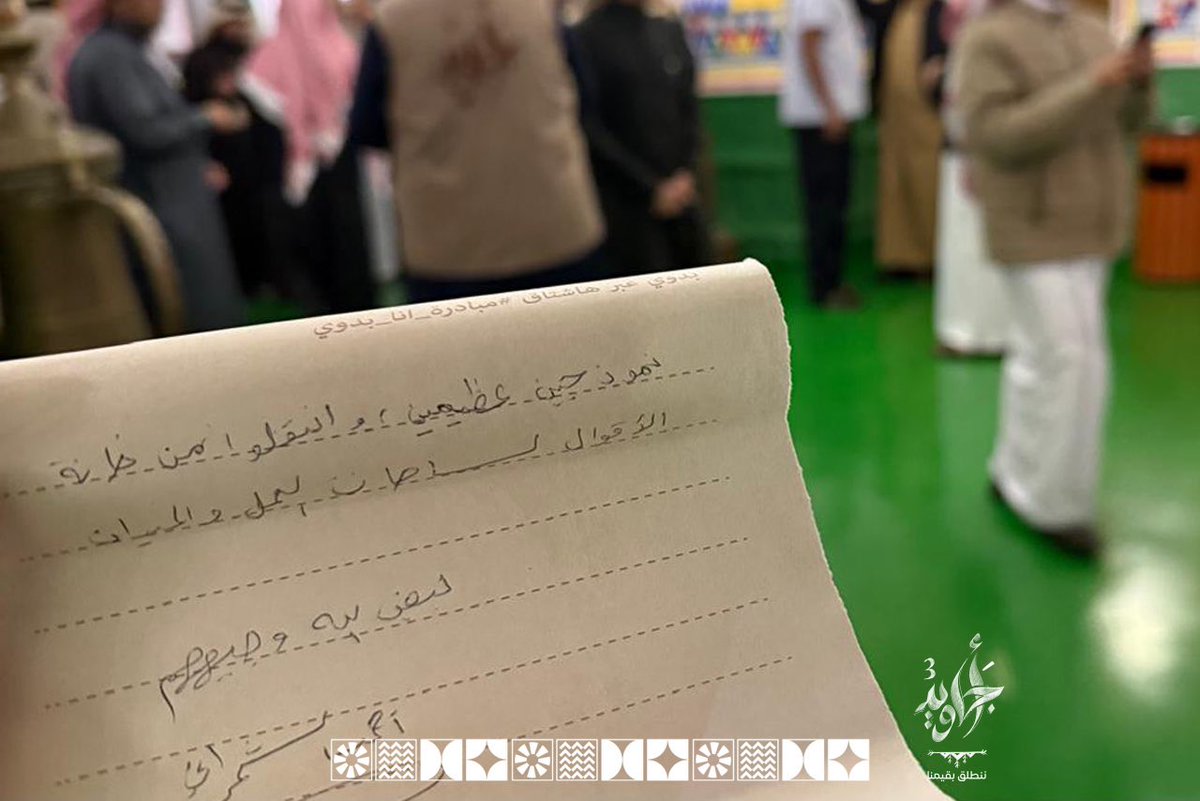 بدوي عبر هاشتاق #مبادرة_انا_بدوي
نموذجين عظيمين، وانتقلوا من خانة
الأقوال لساحات العمل والميدان
لبيض الله وجيههم
أحمد الشمراني
أجاويد
3
ننطلق بقيمنا